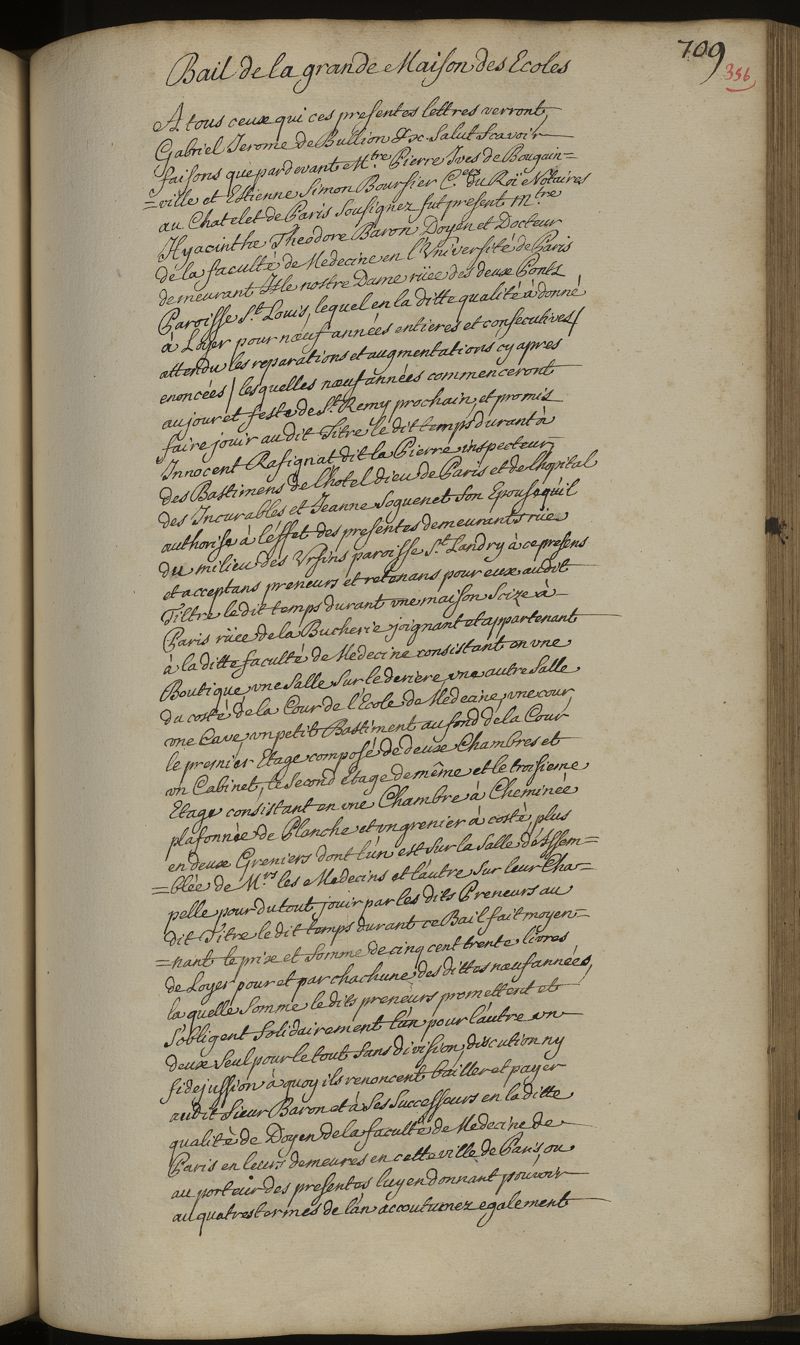 709
356
Bail de la grande Maison des Ecoles
A tous ceux qui ces presentes lettres verront,
Gabriel Jerome de Bullion &c. Salut Scavoir
faisons que pardevant Mtre Pierre Ives de Bougain=
=ville et Estienne Simon Boursier C.ers du Roi Notaires
au Chatelet de Paris Sousignez fut present Mtre
Hyacinthe Theodore Baron Doyen et Docteur
de la faculté de Medecine en l'Université de Paris
demeurant Isle nostre Dame rüe des deux Ponts
Paroisse St. Louis, lequel en la ditte qualité à donné
à Loyer pour nœuf années entieres et consecutives /
attendu les reparations et augmentations cy apres
enoncées / lesquelles nœuf années commenceront
au jour et feste de St. Remy prochain, et promis
faire jouir au dit Titre le dit temps durant à
Innocent Rafignat dit la Pierre inspecteur
des Bastimens de l'hotel dieu de Paris et de lhopital
des Incurables et Jeanne Soguenet son Epouse quil
authorise à l'éffet des presentes demeurants rüe
du milieu des Ursins paroisse St. Landry à ce presens
et acceptans preneurs et retenans pour eux audit
Tiltre le dit temps durant une maison Scize à
Paris rüe de la Bucherie joignant et appartenant
à la ditte faculté de Medecine consistant en une
Boutique une Salle Sur le deriere, une autre Salle
du costé de la Cour de l'Ecole de Medecine, une cour
une Cave, un petit Bastiment au fond de la Cour
le premier Etage composé de deux Chambres et
un Cabinet, le Second étage de même et le troisieme
Etage consistant en une Chambre à Cheminée
plafonnée de Planche et un grenier à costé, plus
en deux Greniers dont l'un est sur la Salle d'Assem=
=blée de Mrs les Medecins et l'autre Sur leur Cha=
pelle pour du tout jouir par les dits Preneurs au
dit Titre le dit temps durant ce Bail fait moyen=
=nant le prix et Somme de cinq cent trente livres
de Loyer pour et par chachune des dittes nœuf années,
la quelle Somme le dits preneurs promettent et
s'obligent Solidairement l'un pour l'autre un
deux Seul pour le tout Sans division, discution ny
fidejussion à quoy ils renoncent bailler et payer
audit Sieur Baron et à Ses Successeurs en la ditte
qualité de Doyen de la faculté de Medecine de
Paris en leurs demeures en cette ville de Paris, ou
au porteur des presentes luy en donnant pouvoir
au quatres termes de l'an accoutumez egalement